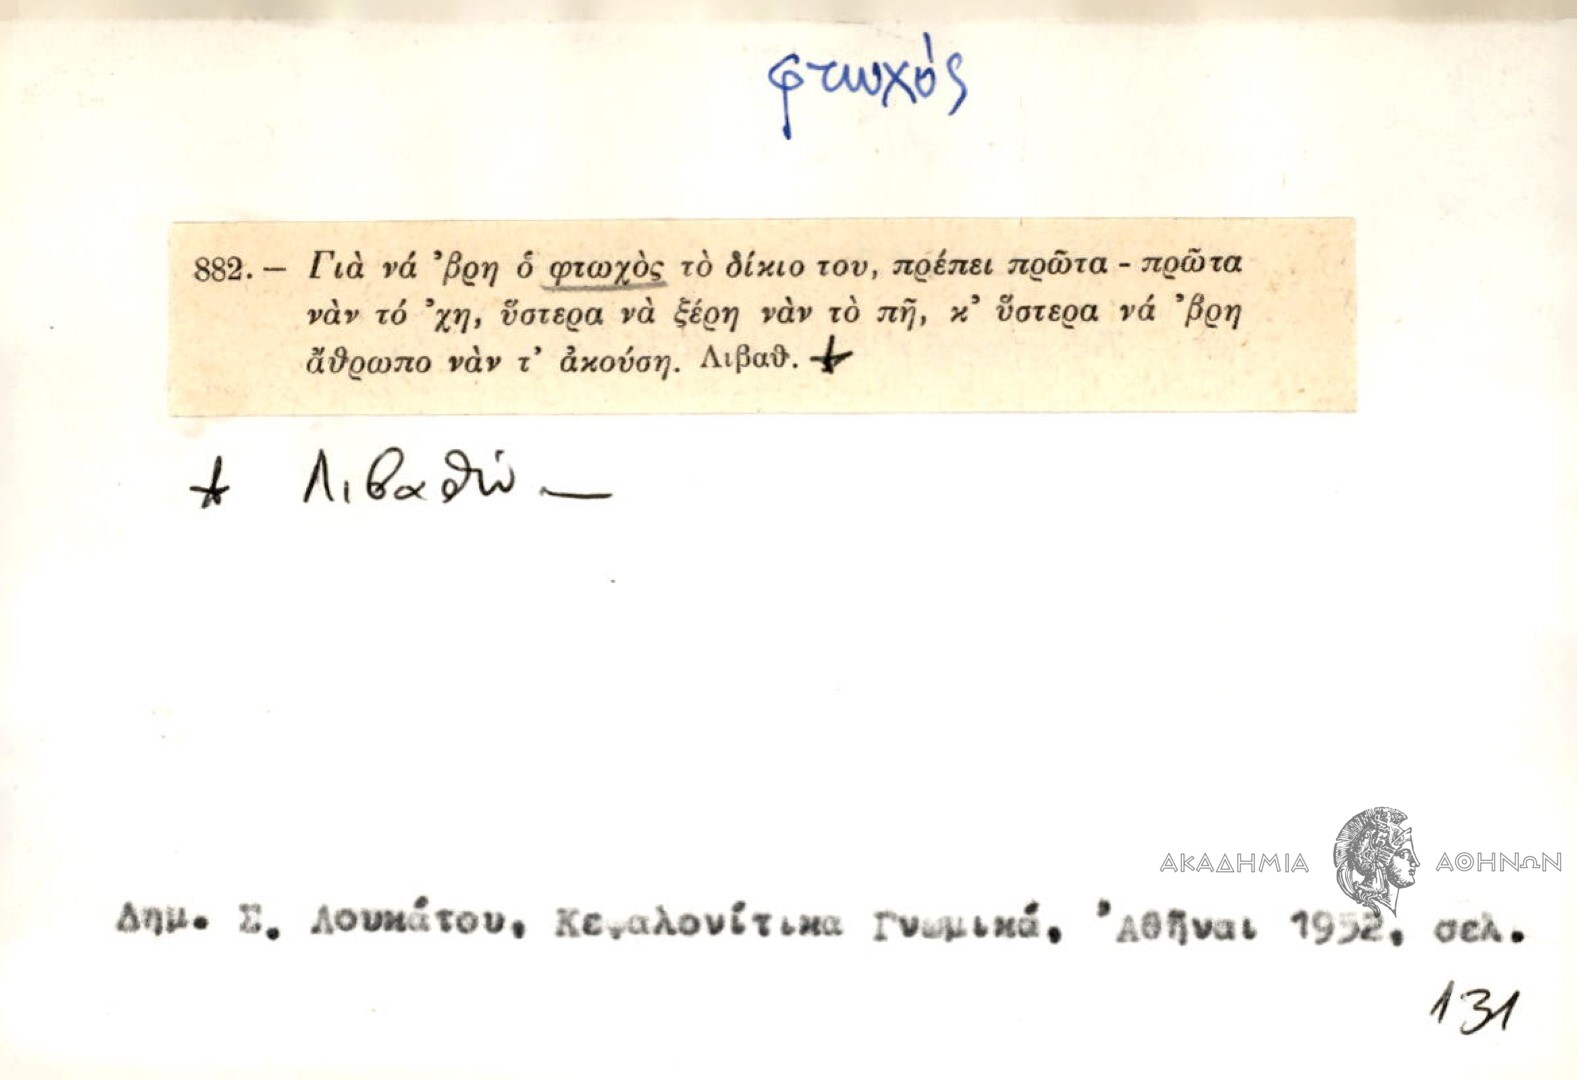 φτωχός
882. – Γιὰ νά 'βρη ὁ φτωχὸς τὸ δίκιο του, πρέπει πρῶτα - πρῶτα
νὰν τό 'χη, ὕστερα νὰ ξέρη νὰν τὸ πῆ, κ' ὕστερα νά 'βρη
ἄθρωπο νὰν τ' ἀκούση. Λιβαθ. +
+ Λιβαθώ —
ΑΚΑΔΗΜΙΑ ΑΘΗΝΩΝ
Δημ. Σ. Λουκάτου, Κεφαλονίτικα Γνωμικά, Ἀθῆναι 1952, σελ.
131